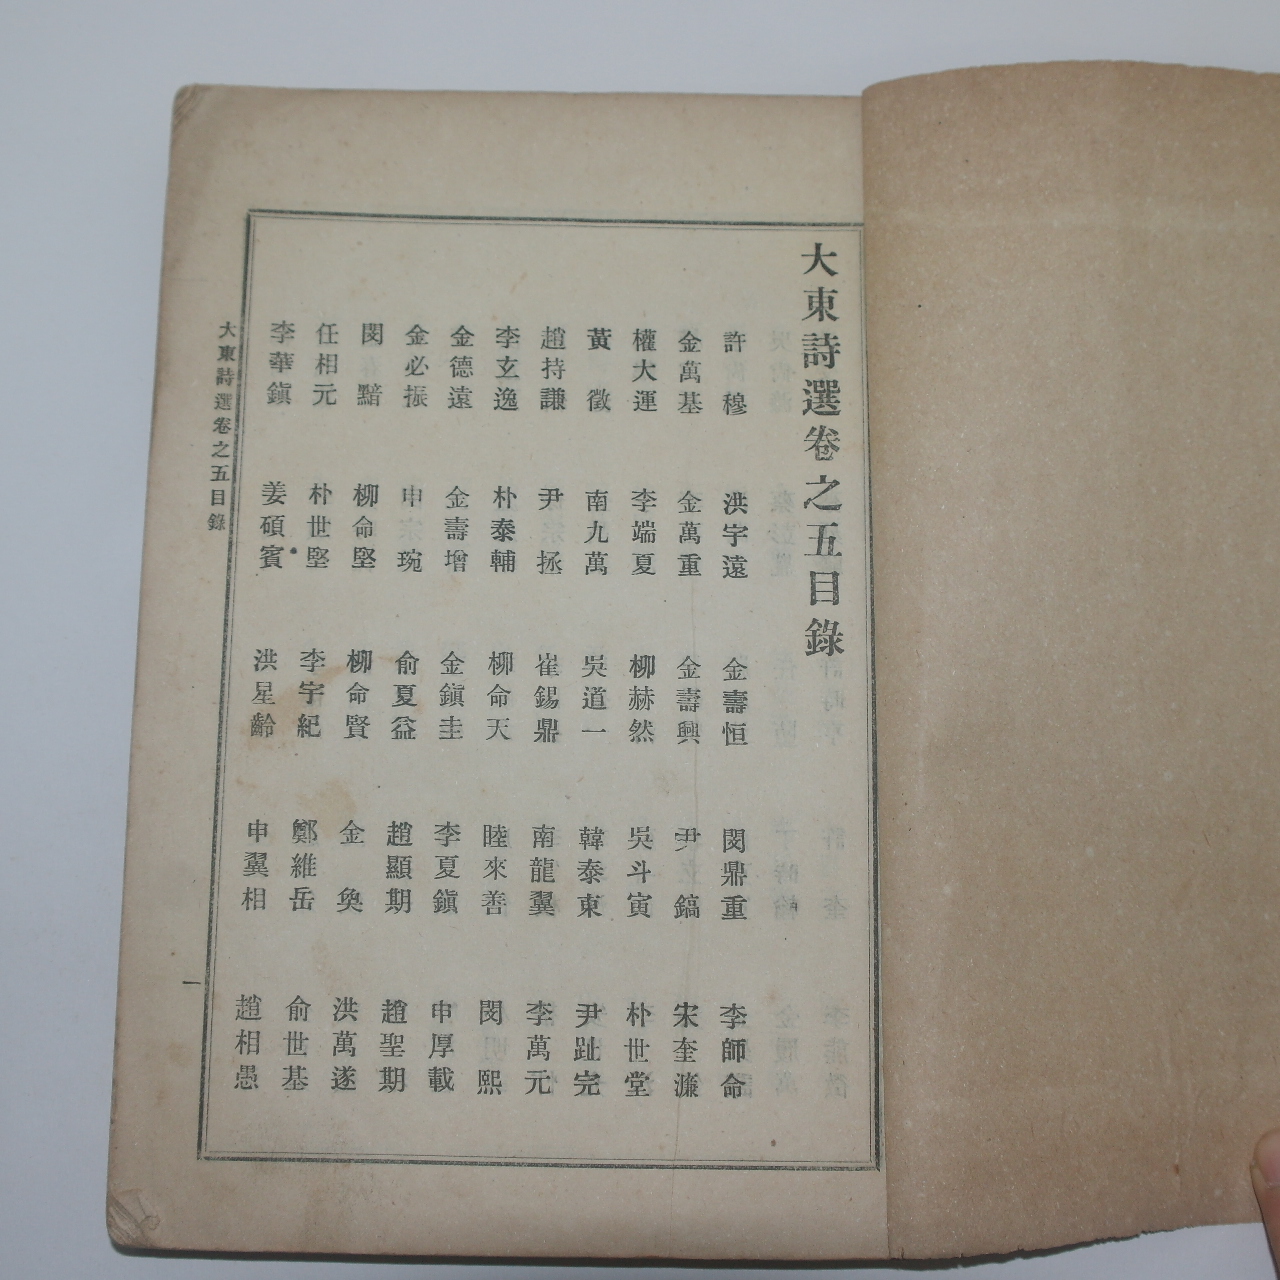 大東詩選卷之五目錄
許穆 洪宇遠 金壽恒 閔鼎重 李師命
金萬基 金萬重 金壽興 尹鑴 宋奎濂
權大運 李端夏 柳赫然 吳斗寅 朴世堂
黃徵 南九萬 吳道一 韓泰東 尹趾完
趙持謙 尹拯 崔錫鼎 南龍翼 李萬元
李玄逸 朴泰輔 柳命天 睦來善 閔熙
金德遠 金壽增 金鎭圭 李夏鎭 申厚載
金必振 申琬 俞夏益 趙顯期 趙聖期
閔黯 柳命堅 柳命賢 金奐 洪萬遂
任相元 朴世堅 李宇紀 鄭維岳 俞世基
李華鎭 姜碩賓 洪星齡 申翼相 趙相愚
大東詩選卷之五目錄
一